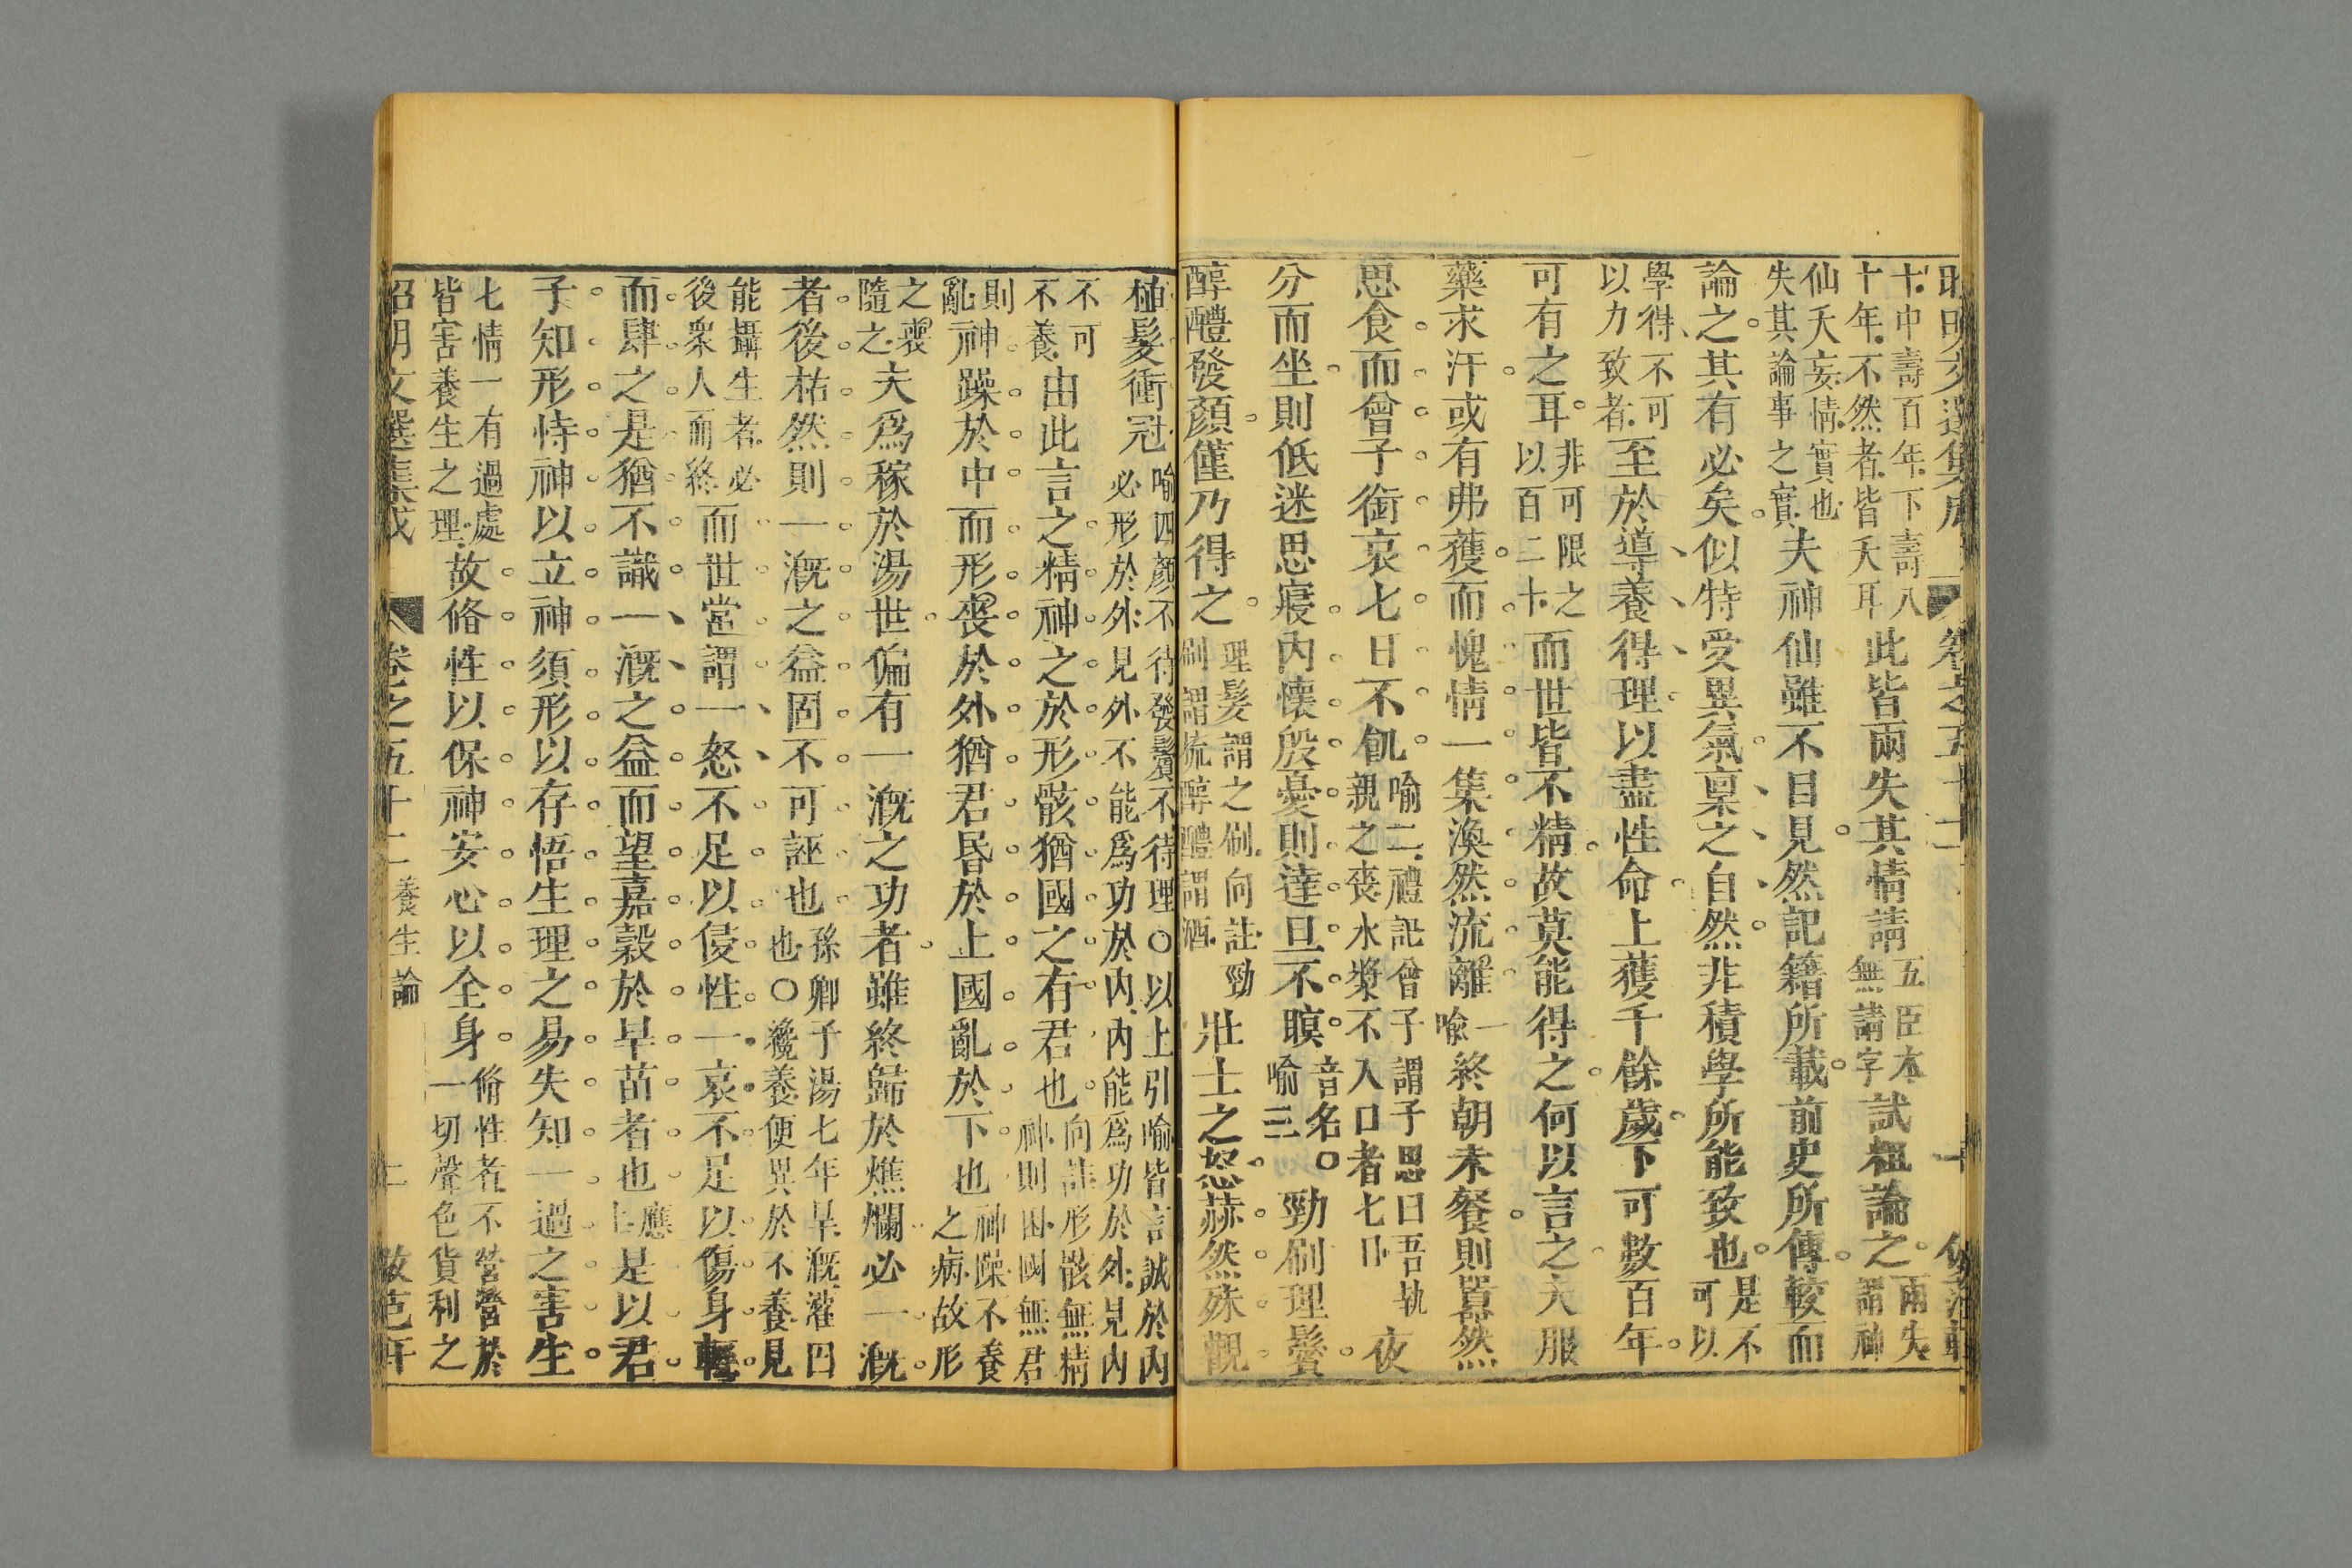 昭明文選集成 卷之五十二 十 倣范軒
十中壽百年下壽八十年不然者皆夭耳此皆兩失其情請五臣本無請字試粗論之兩失謂神
仙夭妄情實也失其論事之實夫神仙雖不目見然記籍所載前史所傳較而
論之其有必矣似特受異氣稟之自然非積學所能致也是不可以
學得不可以力致者至於導養得理以盡性命上獲千餘歲下可數百年
可有之耳非可限之以百二十而世皆不精故莫能得之何以言之夫服
藥求汗或有弗獲而愧情一集渙然流離喻一終朝未餐則囂然
思食而曾子銜哀七日不飢喻二禮記曾子謂子思曰吾執親之喪水漿不入口者七日夜
分而坐則低迷思寢內懷殷憂則達旦不瞑音名○喻三勁刷理鬢
醇醴發顏僅乃得之理髮謂之刷向註勁刷謂梳醇醴謂酒壯士之怒赫然殊觀
植髮衝冠喻四顏不待發鬢不待理○以上引喻皆言誠於內必形於外見外不能為功於內內能為功於外見內
不可不養由此言之精神之於形骸猶國之有君也向註形骸無精神則困國無君
則亂神躁於中而形喪於外猶君昏於上國亂於下也神躁不養之病故形
之喪隨之夫為稼於湯世偏有一溉之功者雖終歸於燋爛必一溉
者後枯然則一溉之益固不可誣也孫卿子湯七年旱溉灌四也○纔養便異於不養見
能攝生者必後衆人而終而世常謂一怒不足以侵性一哀不足以傷身輕
而肆之是猶不識一溉之益而望嘉穀於旱苗者也應上是以君
子知形恃神以立神須形以存悟生理之易失知一過之害生
七情一有過處皆害養生之理故脩性以保神安心以全身脩性者不營營於一切聲色貨利之
昭明文選集成 卷之五十二 養生論 二 倣范軒